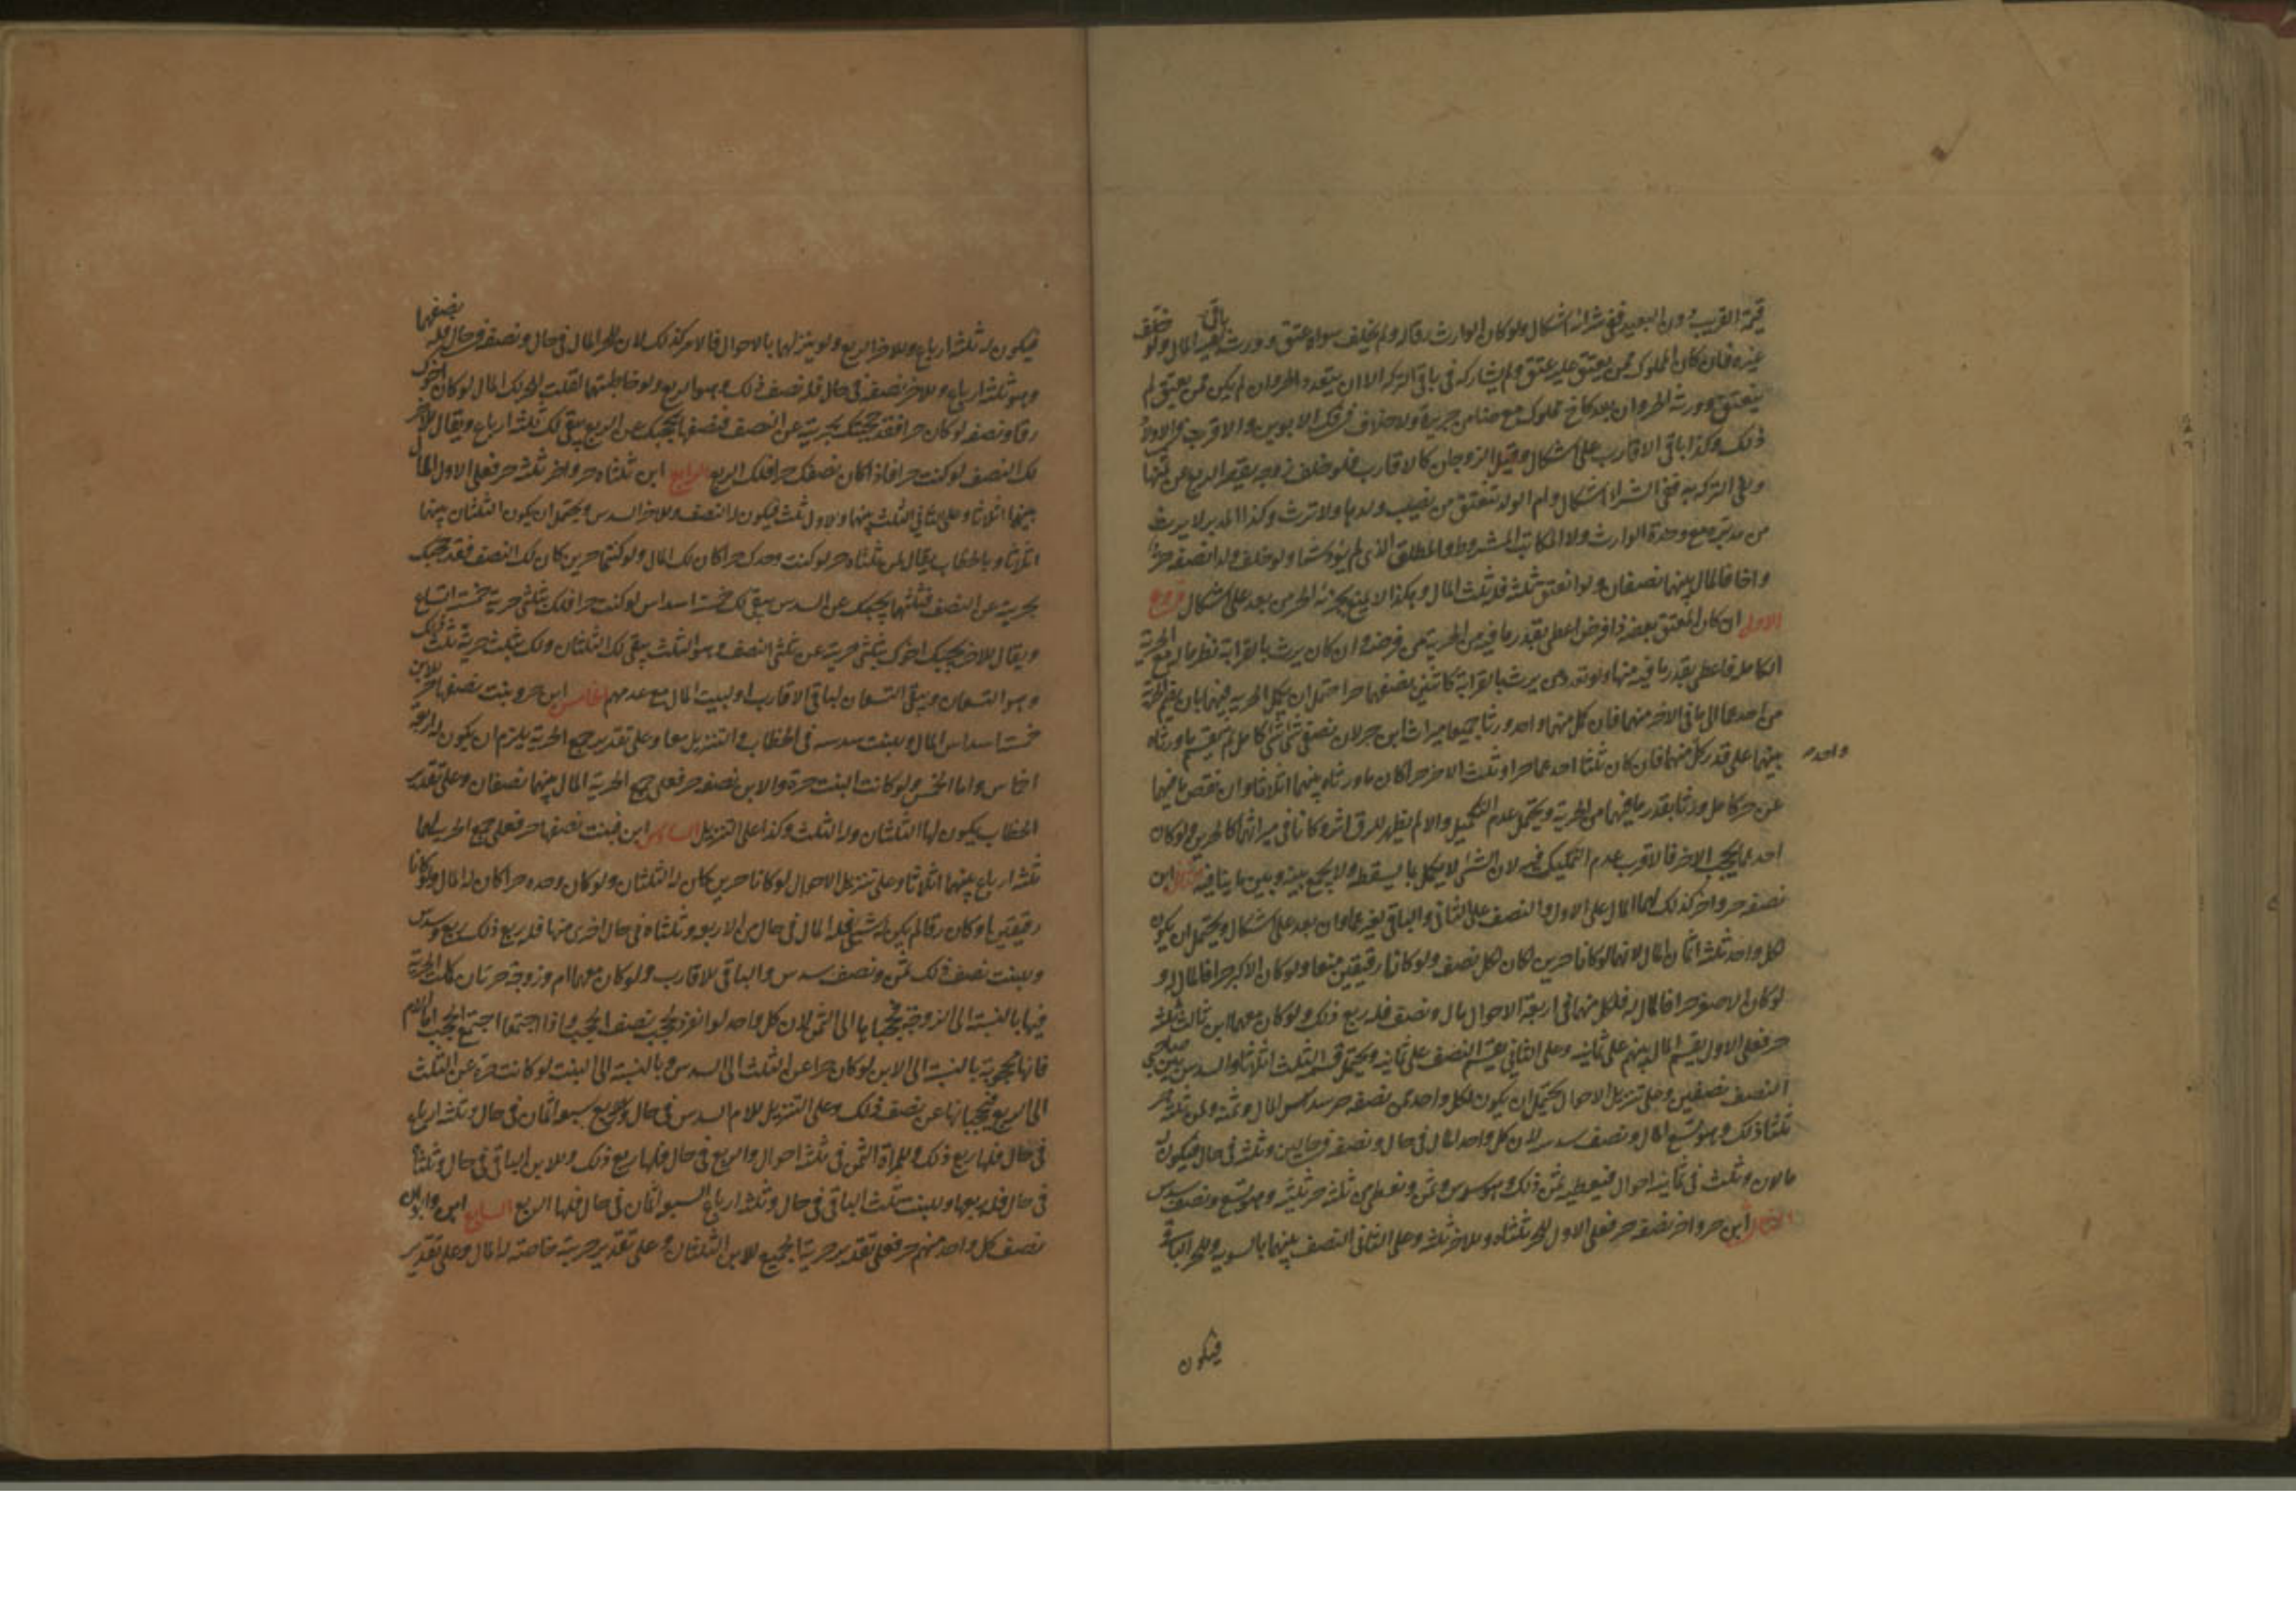 قيمة القريب دون البعيد ففي شرائه اشكال ولو كان الوارث رقا له ولم يخلف سواه عتق وورث باقي المال ولو خلف
غيره فان كان المملوك ممن يعتق عليه عتق ولم يشاركه في باقي التركة الا ان يتعدد الحر وان لم يكن ممن يعتق لم
ينعتق وورثه الحر وان بعد كاخ مملوك مع ضامن جريرة ولا خلاف في فك الابوين والاقرب في الاولاد
ذلك وكذا باقي الاقارب على اشكال وقيل الزوجان كالاقارب فلو خلف زوجة يقصر الربع عن ثمنها
وتفي التركة به ففي الشراء اشكال وام الولد تنعتق من نصيب ولدها ولا ترث وكذا المدبر لا يرث
من مدبره مع وحدة الوارث ولا المكاتب المشروط والمطلق الذي لم يؤد شيئا ولو خلف ولدا نصفه حر
واخا فالمال بينهما نصفان ولو انعتق ثلثه فله ثلث المال وهكذا ولا يمنع بجزئه الحر من بعد على اشكال فروع
الاول ان كان المعتق بعضه ذا فرض اعطي بقدر ما فيه من الحرية من فرضه وان كان يرث بالقرابة نظر ما له مع الحرية
الكاملة فاعطي بقدر ما فيه منها ولو تعدد من يرث بالقرابة كابنين نصفهما حر احتمل ان يكمل الحرية فيهما بان يضم الحرية
من احدهما الى ما في الاخر منهما فان كمل منهما واحد ورثا جميعا ميراث ابن حر لان نصفي شيء شيء كامل ثم يقسم ما ورثاه
بينهما على قدر كل واحد منهما فان كان ثلثا احدهما حرا وثلث الاخر حر كان ما ورثاه بينهما اثلاثا وان نقص ما فيهما
عن حر كامل ورثا بقدر ما فيهما من الحرية ويحتمل عدم التكميل والا لم يظهر للرق اثر وكانا في ميراثهما كالحرين ولو كان
احدهما يحجب الاخر فالاقرب عدم التكميل فيه لان الشيء لا يكمل بما يسقطه ولا يجمع بينه وبين ما ينافيه مثال ابن
نصفه حر واخر كذلك لهما المال على الاول والنصف على الثاني والباقي لغيرهما وان بعد على اشكال ويحتمل ان يكون
لكل واحد ثلثة اثمان المال لانهما لو كانا حرين لكان لكل نصف ولو كانا رقيقين منعا ولو كان الاكبر حرا فالمال له و
لو كان الاصغر حرا فالمال له فلكل منهما في اربعة الاحوال مال ونصف فله ربع ذلك ولو كان معهما ابن ثالث ثلثه
حر فعلى الاول يقسم المال بينهم على ثمانية وعلى الثاني يقسم النصف على ثمانية ويحتمل قسمة الثلث اثلاثا والسدس بين صاحبي
النصف نصفين وعلى تنزيل الاحوال يحتمل ان يكون لكل واحد ممن نصفه حر سدس المال وثمنه ولمن ثلثه حر
ثلثا ذلك وهو تسع المال ونصف سدسه لان لكل واحد المال في حال ونصفه في حالين وثلثه في حال فيكون له
مالان وثلث في ثمانية احوال فنعطيه ثمن ذلك وهو سدس وثمن ونعطي من ثلثه حر ثلثيه وهو تسع ونصف سدس
الثالث ابن حر واخر نصفه حر فعلى الاول للحر ثلثاه وللاخر ثلثه وعلى الثاني النصف بينهما بالسوية وللحر الباقي
فيكون
فيكون له ثلثة ارباع وللاخر الربع ولو ينزلهما بالاحوال فالامر كذلك لان للحر المال في حال ونصفه في حال فله نصفهما
وهو ثلثة ارباع وللاخر نصفه في حال فله نصف ذلك وهو الربع ولو خاطبتهما لقلت للحر لك المال لو كان اخوك
رقا ونصفه لو كان حرا فقد حجبك بحريته عن النصف فنصفها يحجبك عن الربع يبقى لك ثلثة ارباع ويقال للاخر
لك النصف لو كنت حرا فاذا كان نصفك حرا فلك الربع الرابع ابن ثلثاه حر واخر ثلثه حر فعلى الاول المال
بينهما اثلاثا وعلى الثاني الثلث بينهما وللاول ثلث فيكون له النصف وللاخر السدس ويحتمل ان يكون الثلثان بينهما
اثلاثا وبالخطاب يقال لمن ثلثاه حر لو كنت وحدك حرا كان لك المال ولو كنتما حرين كان لك النصف فقد حجبك
بحريته عن النصف فثلثها يحجبك عن السدس يبقى لك خمسة اسداس لو كنت حرا فلك بثلثي حرية خمسة اتساع
ويقال للاخر يحجبك اخوك بثلثي حريته عن ثلثي النصف وهو الثلث يبقى لك الثلثان ولك بثلث حرية ثلث ذلك
وهو التسعان ويبقى التسعان لباقي الاقارب او لبيت المال مع عدمهم الخامس ابن حر وبنت نصفها حر للابن
خمسة اسداس المال وللبنت سدسه في الخطاب والتنزيل معا وعلى تقدير جمع الحرية يلزم ان يكون له اربعة
اخماس ولها الخمس ولو كانت البنت حرة والابن نصفه حر فعلى جمع الحرية المال بينهما نصفان وعلى تقدير
الخطاب يكون لها الثلثان وله الثلث وكذا على التنزيل السادس ابن وبنت نصفهما حر فعلى جمع الحرية لهما
ثلثة ارباع بينهما اثلاثا وعلى تنزيل الاحوال لو كانا حرين كان له الثلثان ولو كان وحده حرا كان له المال ولو كانا
رقيقين او كان رقا لم يكن له شيء فله المال في حال من الاربعة وثلثاه في حال اخرى منها فله ربع ذلك ربع وسدس
وللبنت نصف ذلك ثمن ونصف سدس والباقي للاقارب ولو كان معهما ام وزوجة حرتان كملت الحرية
فيهما بالنسبة الى الزوجة فحجباها الى الثمن لان كل واحد لو انفرد لحجب نصف الحجب واذا اجتمعا اجتمع الحجب اما الام
فانها محجوبة بالنسبة الى الابن لو كان حرا عن الثلث الى السدس وبالنسبة الى البنت لو كانت حرة عن الثلث
الى الربع فيحجبانها عن نصف ذلك وعلى التنزيل للام السدس في حال والربع سبعة اثمان في حال وثلثة ارباعه
في حال فلها ربع ذلك وللمراة الثمن في ثلثة احوال والربع في حال فلها ربع ذلك وللابن الباقي في حال وثلثاه
في حال فله ربعها وللبنت ثلث الباقي في حال وثلثة ارباع السبعة اثمان في حال فلها الربع السابع ابن وابوان
نصف كل واحد منهم حر فعلى تقدير حرية الجميع للابن الثلثان وعلى تقدير حريته خاصة له المال وعلى تقدير